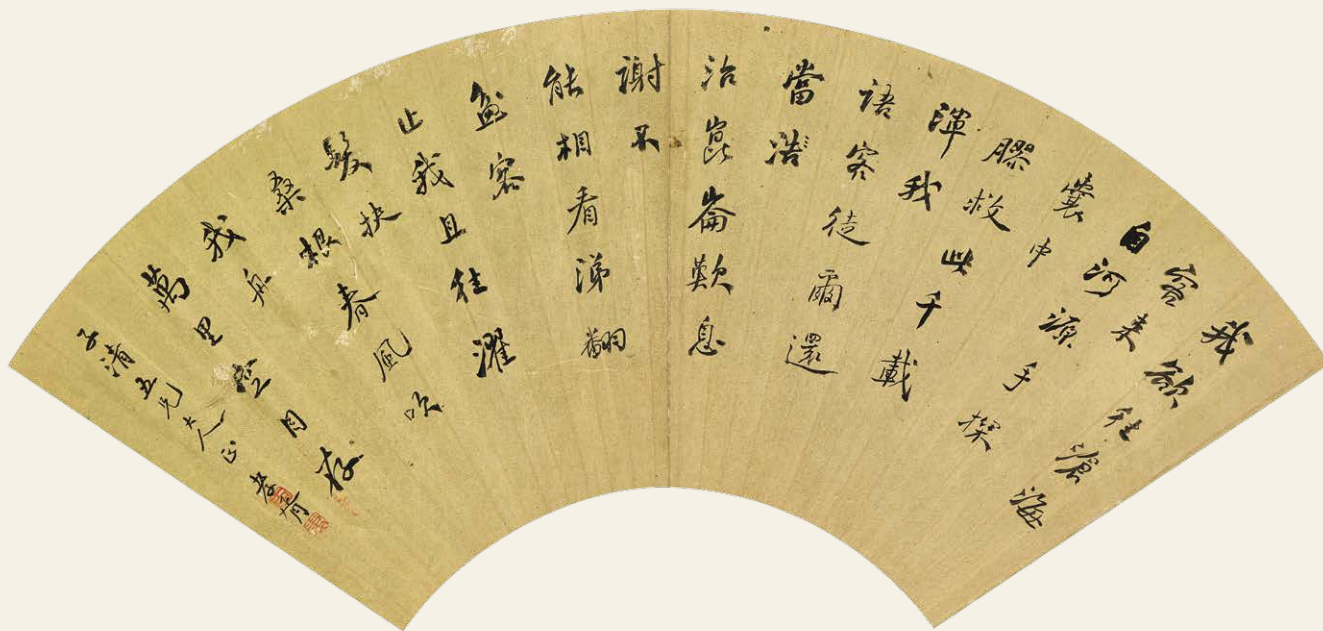 我欲往滄海
客来
自河源手探
囊中
膠救此千載
渾我
語客徒爾還
當浩
治崑崙歎息
謝不
能相看涕翻
盆客
止我且往濯
髮扶
桑根春風吹
我舟
萬里空目存
子清五兄大人正 孝胥